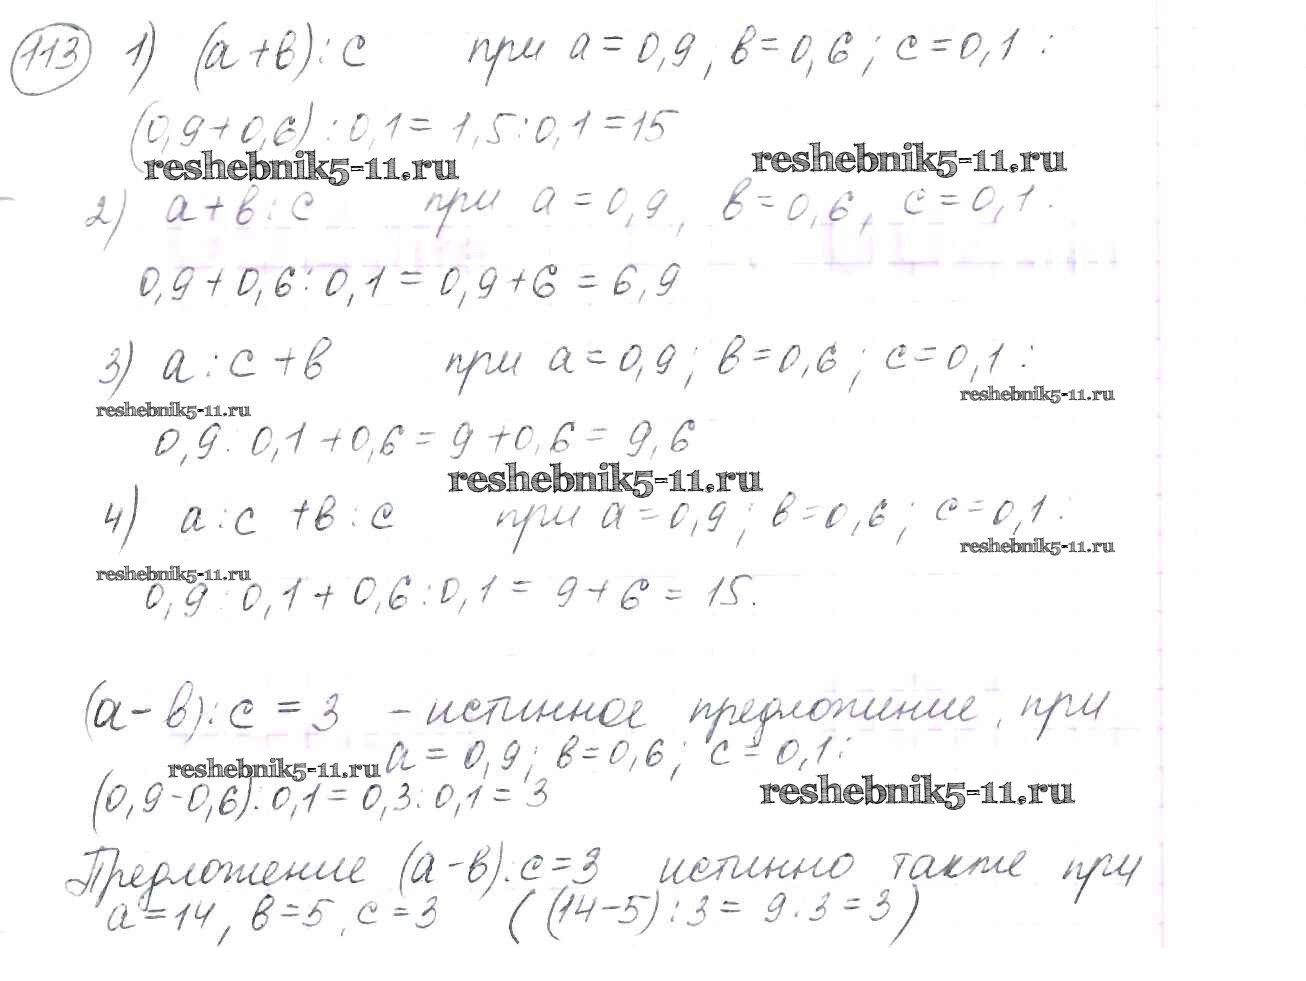 113 1) (а+в):с при а=0,9, в=0,6; с=0,1:
(0,9+0,6):0,1=1,5:0,1=15
reshebnik5-11.ru reshebnik5-11.ru
2) а+в:с при а=0,9, в=0,6, с=0,1:
0,9+0,6:0,1=0,9+6=6,9
3) а:с+в при а=0,9; в=0,6; с=0,1:
reshebnik5-11.ru reshebnik5-11.ru
0,9:0,1+0,6=9+0,6=9,6
reshebnik5-11.ru
4) а:с+в:с при а=0,9; в=0,6; с=0,1:
reshebnik5-11.ru
reshebnik5-11.ru
0,9:0,1+0,6:0,1=9+6=15.
(а-в):с=3 – истинное предложение, при
а=0,9; в=0,6; с=0,1:
reshebnik5-11.ru
(0,9-0,6):0,1=0,3:0,1=3
reshebnik5-11.ru
Предложение (а-в):с=3 истинно также при
а=14, в=5, с=3 ((14-5):3=9:3=3)